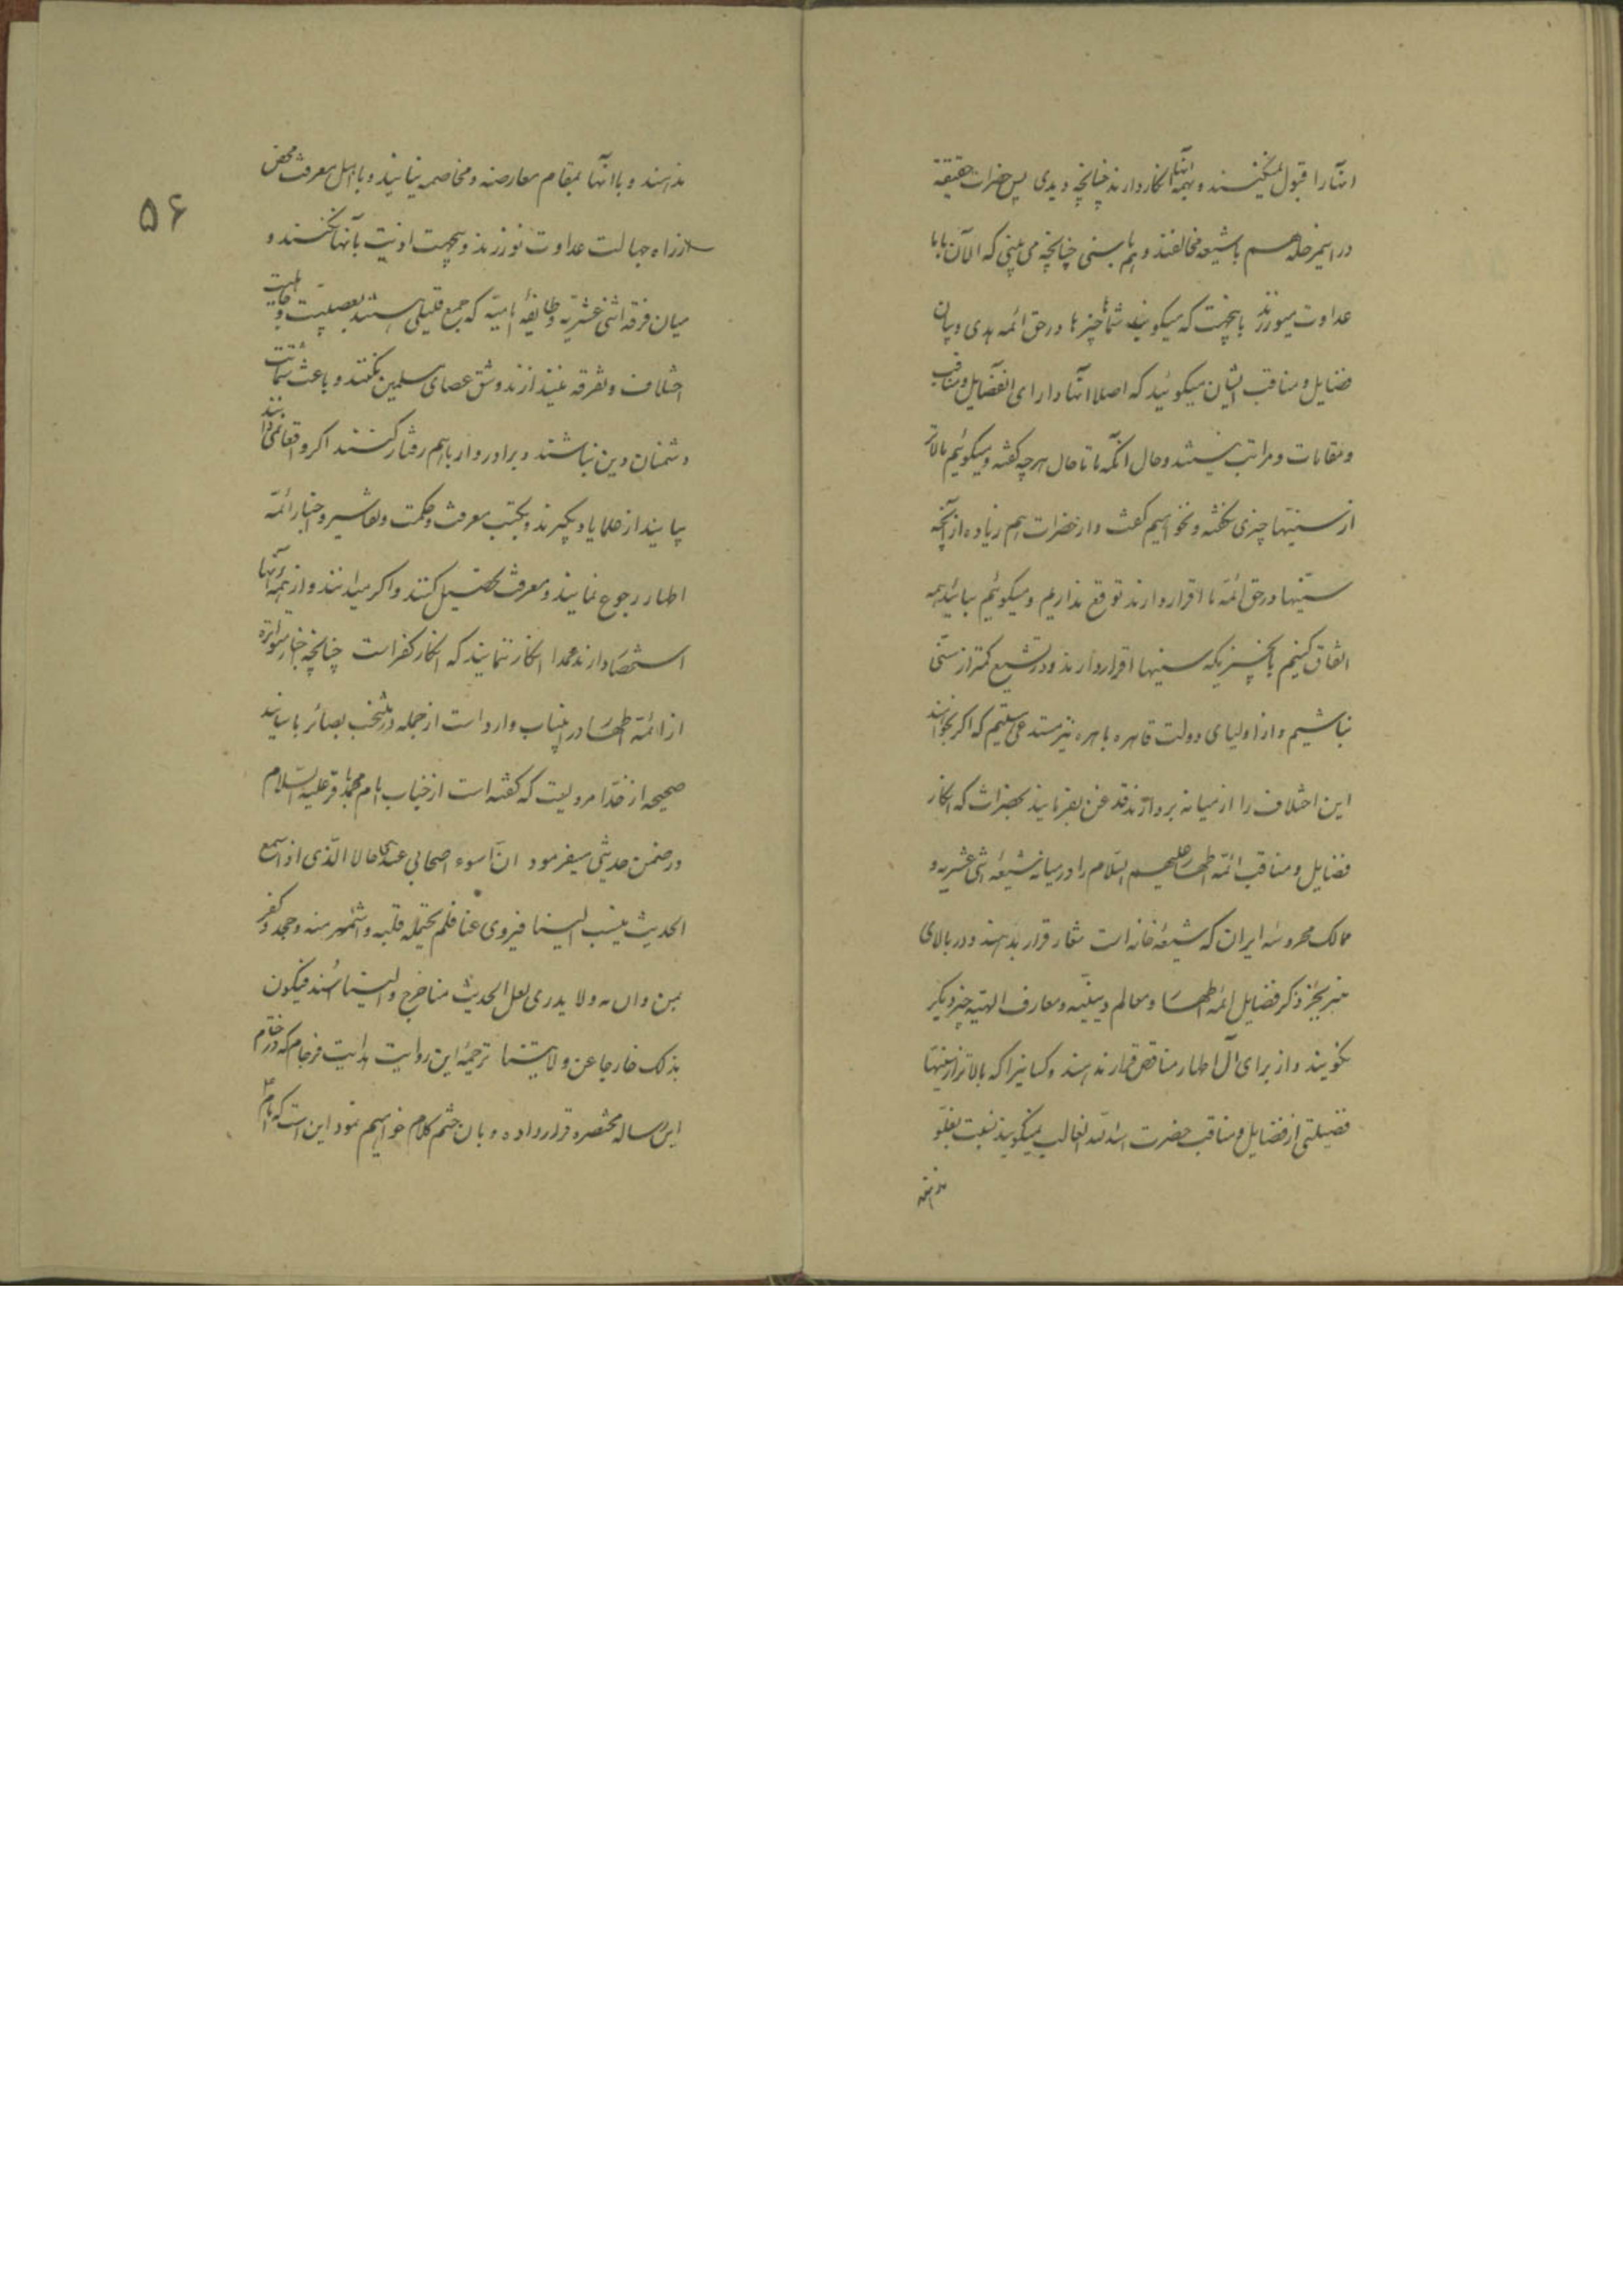 انها را قبول نمیکنند و بهمه اینها انکار دارند چنانچه دیدی پس حضرات حقیقة
در اینمرحله هم با شیعه مخالفند و هم با سنی چنانچه می بینی که الآن با ما
عداوت میورزند باینجهت که میگویند شما چیزها در حق ائمه هدی و بیان
فضایل و مناقب ایشان میگوئید که اصلا انها دارای انفضایل و مناقب
و مقامات و مراتب نیستند و حال انکه ما تا حال هر چه گفته و میگوئیم بالاتر
از سنیها چیزی نگفته و نخواهیم گفت و از حضرات هم زیاده از آنچه
سنیها در حق ائمه ما اقرار دارند توقع نداریم و میگوئیم بیائید همه
اتفاق کنیم بانچیزیکه سنیها اقرار دارند و در تشیع کمتر از سنی
نباشیم و از اولیای دولت قاهره باهره نیز مستدعی هستیم که اگر بخواهند
این اختلاف را از میانه بردارند قدغن بفرمایند بحضرات که انکار
فضایل و مناقب ائمه اطهار علیهم السلام را در میانه شیعه اثنی عشریه و
ممالک محروسه ایران که شیعه خانه است شعار قرار ندهند و در بالای
منبر بجز ذکر فضایل ائمه اطهار و معالم دینیه و معارف الهیه چیز دیگر
نگویند و از برای آل اطهار مناقص قرار ندهند و کسانیرا که بالاتر از سنیها
فضیلتی از فضایل و مناقب حضرت اسدالله الغالب میگویند نسبت بغلو
ندهند
ندهند و با انها بمقام معارضه و مخاصمه نیایند و با اهل معرفت محض
از راه جهالت عداوت نورزند و بیجهت اذیت بآنها نکنند و
میان فرقه اثنی عشریه و طایفه امامیه که جمع قلیلی هستند بعصبیت و جاهلیت
اختلاف و تفرقه نیندازند و شق عصای مسلمین نکنند و باعث شماتت
دشمنان دین نباشند و برادروار با هم رفتار کنند اگر واقعا نمیدانند
بیایند از علما یاد بگیرند و بکتب معرفت و حکمت و تفاسیر و اخبار ائمه
اطهار رجوع نمایند و معرفت تحصیل کنند و اگر میدانند و از همه آنها
استحضار دارند عمدا انکار ننمایند که انکار کفر است چنانچه اخبار متواتره
از ائمه اطهار در اینباب وارد است از جمله در منتخب بصائر باسانید
صحیحه از حذا مرویست که گفته است از جناب امام محمد باقر علیه السلام
در ضمن حدیثی میفرمود ان اسوء اصحابی عندی حالا الذی اذا سمع
الحدیث ینسب الینا فیروی عنا فلم یحتمله قلبه و اشمئز منه و جحد و کفر
بمن دان به و لا یدری لعل الحدیث منا خرج و الینا اسند فیکون
بذلک خارجا عن ولایتنا ترجمه این روایت هدایت فرجام که در ختام
این رساله مختصره قرار داده و بان ختم کلام خواهیم نمود این است که امام ع
۵۶